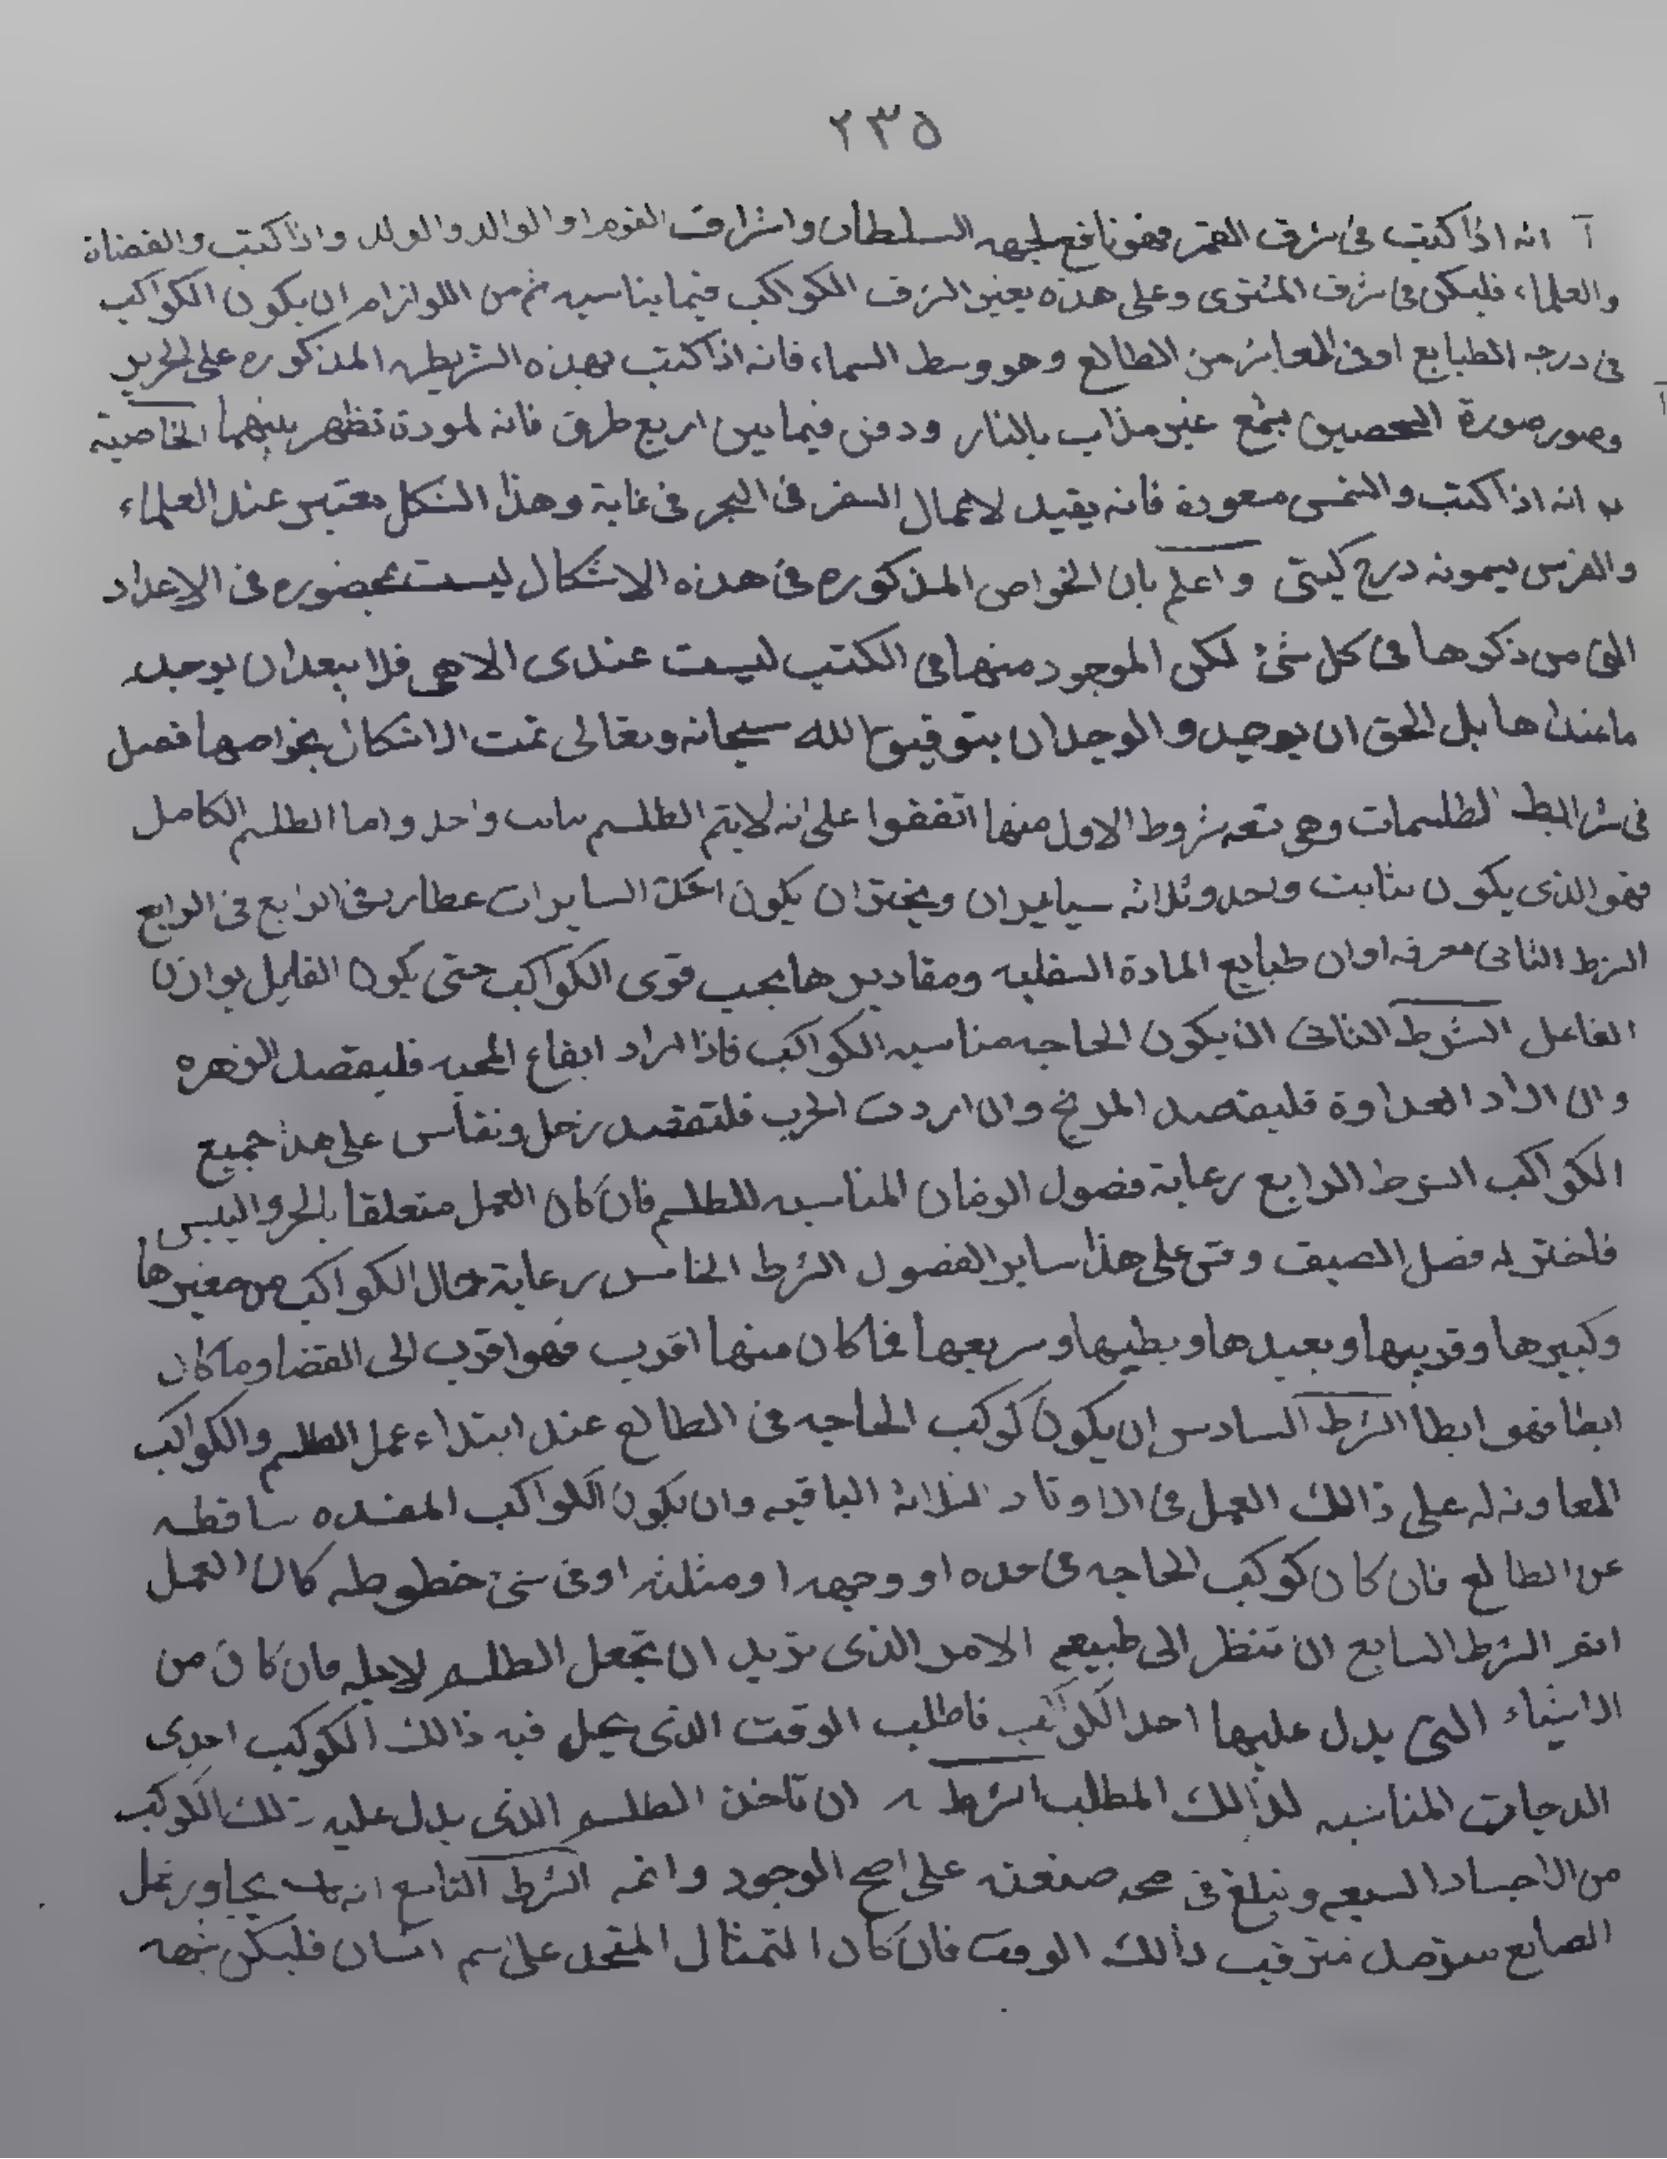 ٢٣٥
آ انه اذا كتب فى شرف القمر فهو نافع لجهه السلطان واشراف القوم او الوالد والولد واذا كتب والقضاة
والعلماء فليكن فى شرف المشترى وعلى هذه يعين الشرف الكواكب فيما يناسبه ثم من اللوازم ان يكون الكواكب
فى درجه الطبايع اوفى العاشر من الطالع وهو وسط السماء فانه اذا كتب بهذه الشريطه المذكوره على الحرير
وصور صورة الشخصين بشمع غير مذاب بالنار ودفن فيما بين اربع طرق فانه لمودة تظهر بينهما الخاصية
ب انه اذا كتب والشمس مسعودة فانه يفيد لاعمال السفر فى البحر فى غاية وهذا الشكل معتبر عند العلماء
والفرس يسمونه درج كيتى واعلم بان الخواص المذكوره فى هذه الاشكال ليست محصوره فى الاعداد
التى من ذكرها فى كل شئ لكن الموجود منها فى الكتب ليست عندى الا هى فلا يبعد ان يوجد
ما عندها بل الحق ان يوجد والوجدان بتوفيق الله سبحانه وتعالى تمت الاشكال بخواصها فصل
فى شرايط الطلسمات وهى تسعه شروط الاول منها اتفقوا على انه لا يتم الطلسم بثابت واحد واما الطلسم الكامل
فهو الذى يكون بثابت واحد وثلاثه سيايران ويختر ان يكون احد السايرات عطارد فى الرابع فى الرابع
الشرط الثانى معرفه اوان طبايع المادة السفليه ومقاديرها بحسب قوى الكواكب حتى يكون القليل بوازن
الفاعل الشرط الثالث ان يكون الحاجه مناسبه الكواكب فاذا اراد ايقاع المحبه فليقصد الزهره
وان اراد العداوة فليقصد المريخ وان اردت الحرب فلتقصد زحل ونقاس على هذا جميع
الكواكب الشرط الرابع رعاية فصول الزمان المناسبه للطلسم فان كان العمل متعلقا بالحر واليبس
فاختر له فصل الصيف وقس على هذا ساير الفصول الشرط الخامس رعاية حال الكواكب من صغيرها
وكبيرها وقريبها وبعيدها وبطيها وسريعها فما كان منها اقرب فهو اقرب الى القضا وما كان
ابطا فهو ابطا الشرط السادس ان يكون كوكب الحاجه فى الطالع عند ابتداء عمل الطلسم والكواكب
المعاونه له على ذالك العمل فى الاوتاد الثلاثة الباقيه وان يكون الكواكب المفسده ساقطه
عن الطالع فان كان كوكب الحاجه فى حده او وجهه او مثلثه اوفى شئ خطوطه كان العمل
اتم الشرط السابع ان تنظر الى طبيعه الامر الذى تريد ان تجعل الطلسم لاجله فان كان من
الاشياء التى يدل عليها احد الكواكب فاطلب الوقت الذى يحل فيه ذالك الكوكب احدى
الدرجات المناسبه لذالك المطلب الشرط ٨ ان تاخذ الطلسم الذى يدل عليه تلك الكوكب
من الاجساد السبعه وتبلغ فى صحه صنعته على اصح الوجود واتمه الشرط التاسع انه يجاور عمل
الصانع فترقب ذالك الوقت فان كان التمثال المتخذ على اسم انسان فليكن شبهه